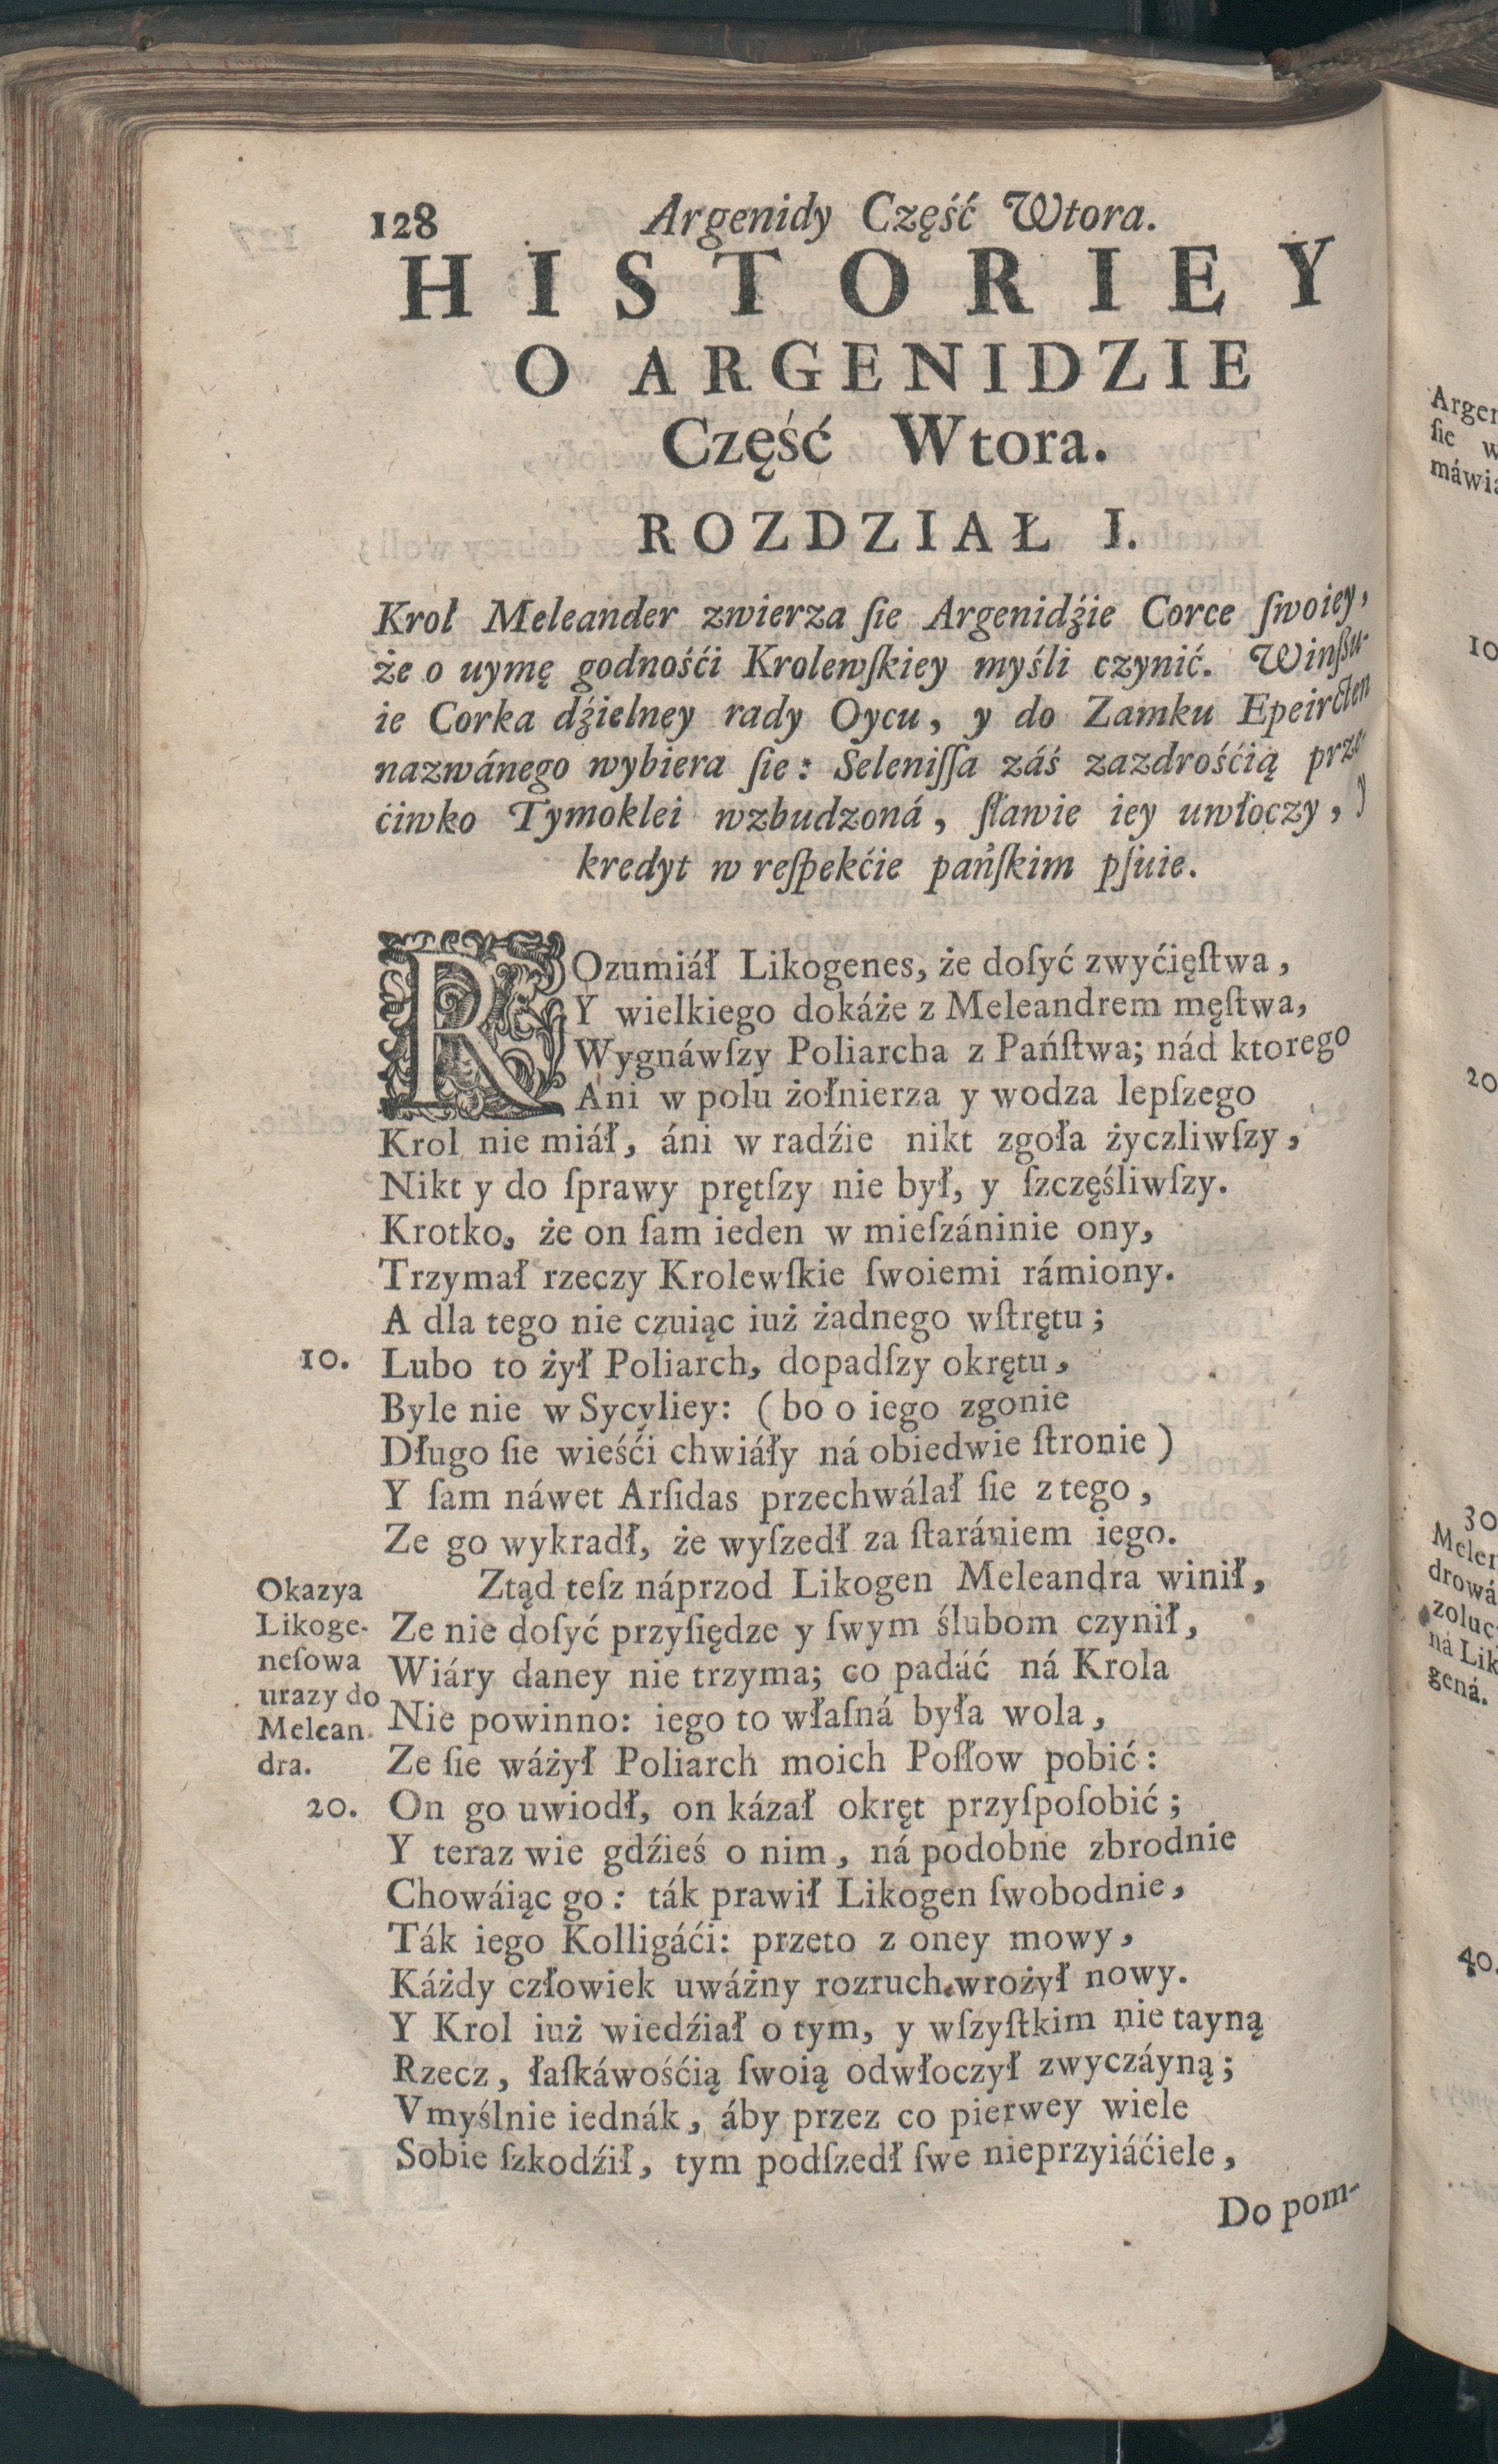 128 Argenidy Część Wtora.
HISTORIEY
O ARGENIDZIE
Część Wtora.
ROZDZIAŁ I.
Krol Meleander zwierza ſie Argenidźie Corce ſwoiey,
że o uymę godnośći Krolewſkiey myśli czynić. Winſzu-
ie Corka dźielney rady Oycu, y do Zamku Epeircten
nazwánego wybiera ſie: Seleniſſa záś zazdrośćią prze-
ćiwko Tymoklei wzbudzoná, ſławie iey uwłoczy, y
kredyt w reſpekćie pańſkim pſuie.
ROzumiáł Likogenes, że doſyć zwyćięſtwa,
Y wielkiego dokáże z Meleandrem męſtwa,
Wygnáwſzy Poliarcha z Pańſtwa; nád ktorego
Ani w polu żołnierza y wodza lepſzego
Krol nie miáł, áni w radźie nikt zgoła życzliwſzy,
Nikt y do ſprawy prętſzy nie był, y ſzczęśliwſzy.
Krotko, że on ſam ieden w mieſzáninie ony,
Trzymał rzeczy Krolewſkie ſwoiemi rámiony.
A dla tego nie czuiąc iuż żadnego wſtrętu;
10. Lubo to żył Poliarch, dopadſzy okrętu,
Byle nie w Sycyliey: (bo o iego zgonie
Długo ſie wieśći chwiáły ná obiedwie ſtronie)
Y ſam náwet Arſidas przechwálał ſie z tego,
Ze go wykradł, że wyſzedł za ſtarániem iego.
Ztąd teſz náprzod Likogen Meleandra winił,
Ze nie doſyć przyſiędze y ſwym ślubom czynił,
Wiáry daney nie trzyma; co padáć ná Krola
Nie powinno: iego to właſná była wola,
Ze ſie wáżył Poliarch moich Poſłow pobić:
20. On go uwiodł, on kázał okręt przyſpoſobić;
Y teraz wie gdźieś o nim, ná podobne zbrodnie
Chowáiąc go: ták prawił Likogen ſwobodnie,
Ták iego Kolligáći: przeto z oney mowy,
Káżdy człowiek uwáżny rozruch wrożył nowy.
Y Krol iuż wiedźiał o tym, y wſzyſtkim nie tayną
Rzecz, łaſkáwośćią ſwoią odwłoczył zwyczáyną;
Vmyślnie iednák, áby przez co pierwey wiele
Sobie ſzkodźił, tym podſzedł ſwe nieprzyiáćiele,
Do pom-
Okazya
Likoge-
neſowa
urazy do
Melean-
dra.
Argen
ſie w
máwia
10
20
30
Meler
drowá
zoluc
ná Lik
gená.
40.